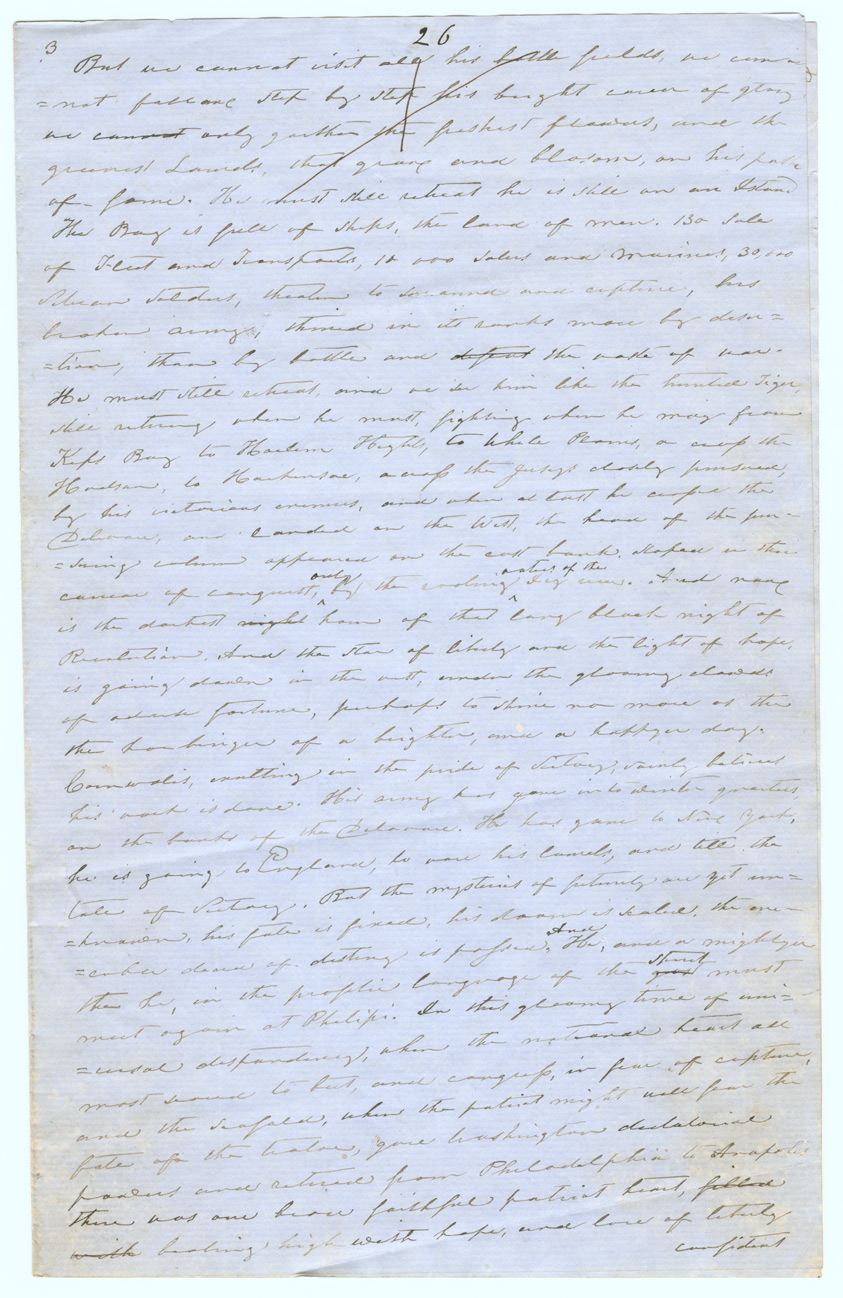 3
26
But we cannot visit all his battle fields, we can
=not follow step by step his bright career of glory
we cannot only gather the freshest flowers, and the
greenest Laurels, that grow and blosom, on his path
of fame. He must still retreat he is still on an Island
The Bay is full of Ships, the land of men. 130 Sale
of Fleet and Transports, 10 000 Salers and marines, 30,000
Soldiers, threaten to surround and capture, his
broken army, thined in its ranks more by deser=
=tion, than by battle and defeat the waste of war.
He must still retreat, and we see him like the hunted Tiger,
still retiring when he must, fighting when he may from
Keps Bay to Harlem Hights, to White Plains, a cross the
Hudson, to Hackensac, across the Jerseys closely pursued,
by his victorious enemies, and when at last he crossed the
Delaware, and landed on the West, the head of the pur=
=suing column appeared on the east bank. stoped in their
career of conquest, only by the waters of the river. And now
is the darkest night hour of that long black night of
Revolution. And the star of liberty and the light of hope,
is going down in the west, under the gloomy clouds
of adverse fortune, perhaps to shine no more as the
the harbinger of a brighter, and a happyer day.
Cornwalis, exulting in the pride of Victory, vainly believes
his work is done. His army has gone into winter quarters
on the banks of the Delaware. He has gone to New York,
he is going to England, to ware his laurels, and tell the
tale of Victory. But the mysteries of futurity are yet un=
=known, his fate is fixed, his doom is sealed, the
decree of destiny is passed, And He, and a mightyer
than he, in the prophetic language of the spirit must
meet again at Philipi. In this gloomy time of uni=
=versal despondency, when the national heart all
most ceased to beat, and congress, in fear of capture,
and the scafold, when the patriot might well fear the
fate of the traitor, gave Washington dictatorial
powers and retired from Philadelphia to Anapolis
there was one brave faithful patriot heart, filled
with beating high with hope, and love of liberty
confident